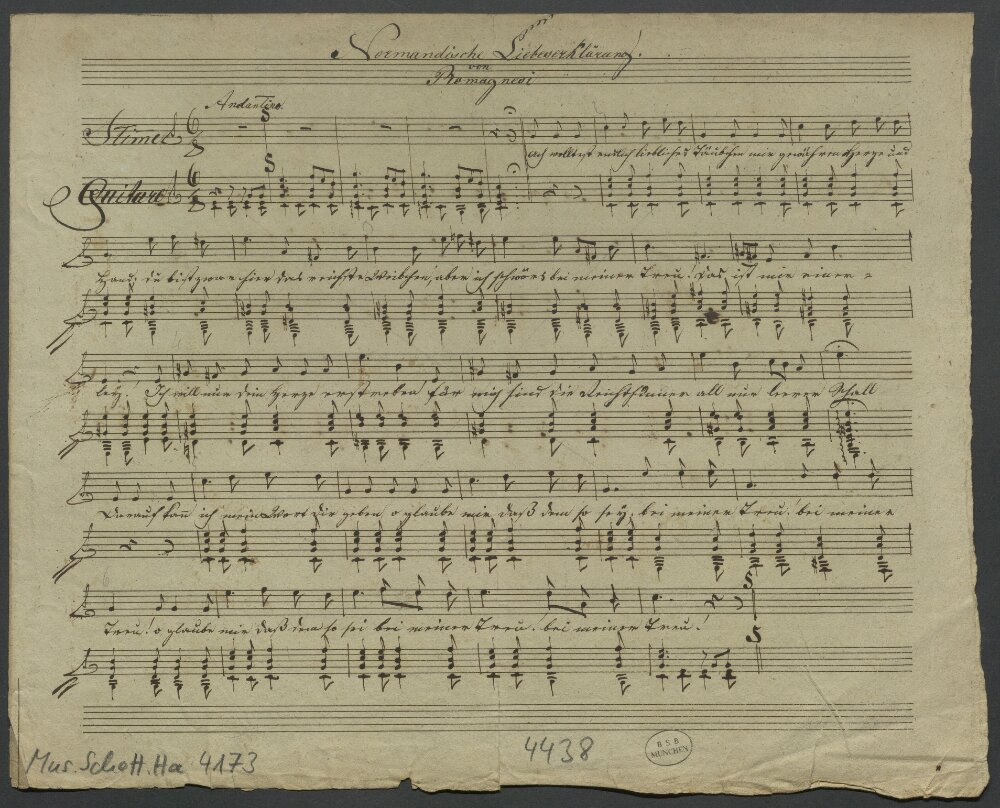 Normandische Liebeserklärung.
von
Romagnesi
Andantino.
Stimme
Ach wolltest endlich liebliches Täubchen mir gewähren Herze und
Guitare
Hand; du bist zwar hier das reichste Weibchen, aber ich schwörs bei meiner Treu! das ist mir einer=
ley! Ich will nur dein Herze erstreben für mich sind die Reichthümer all nur leerer Schall
Darauf kann ich mein Wort dir geben o glaube mir daß dem so sey, bei meiner Treu! bei meiner
Treu! o glaube mir daß dem so sei bei meiner Treu! bei meiner Treu!
Mus.Schott.Ha 4173
4438
BSB
MÜNCHEN